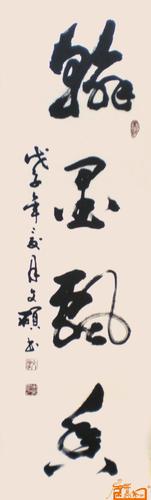 翰墨飘香
戊子年
月文硕书